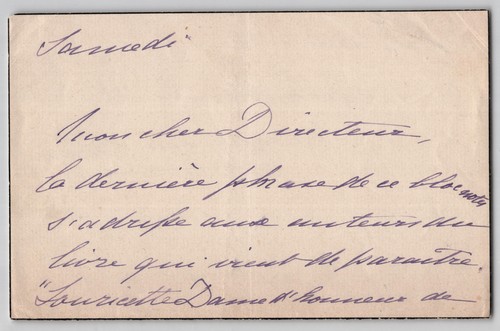 Samedi
Mon cher Directeur,
la dernière phrase de ce bloc notes
s'adresse aux auteurs du
livre qui vient de paraître.
"Souricette Dame d'honneur de